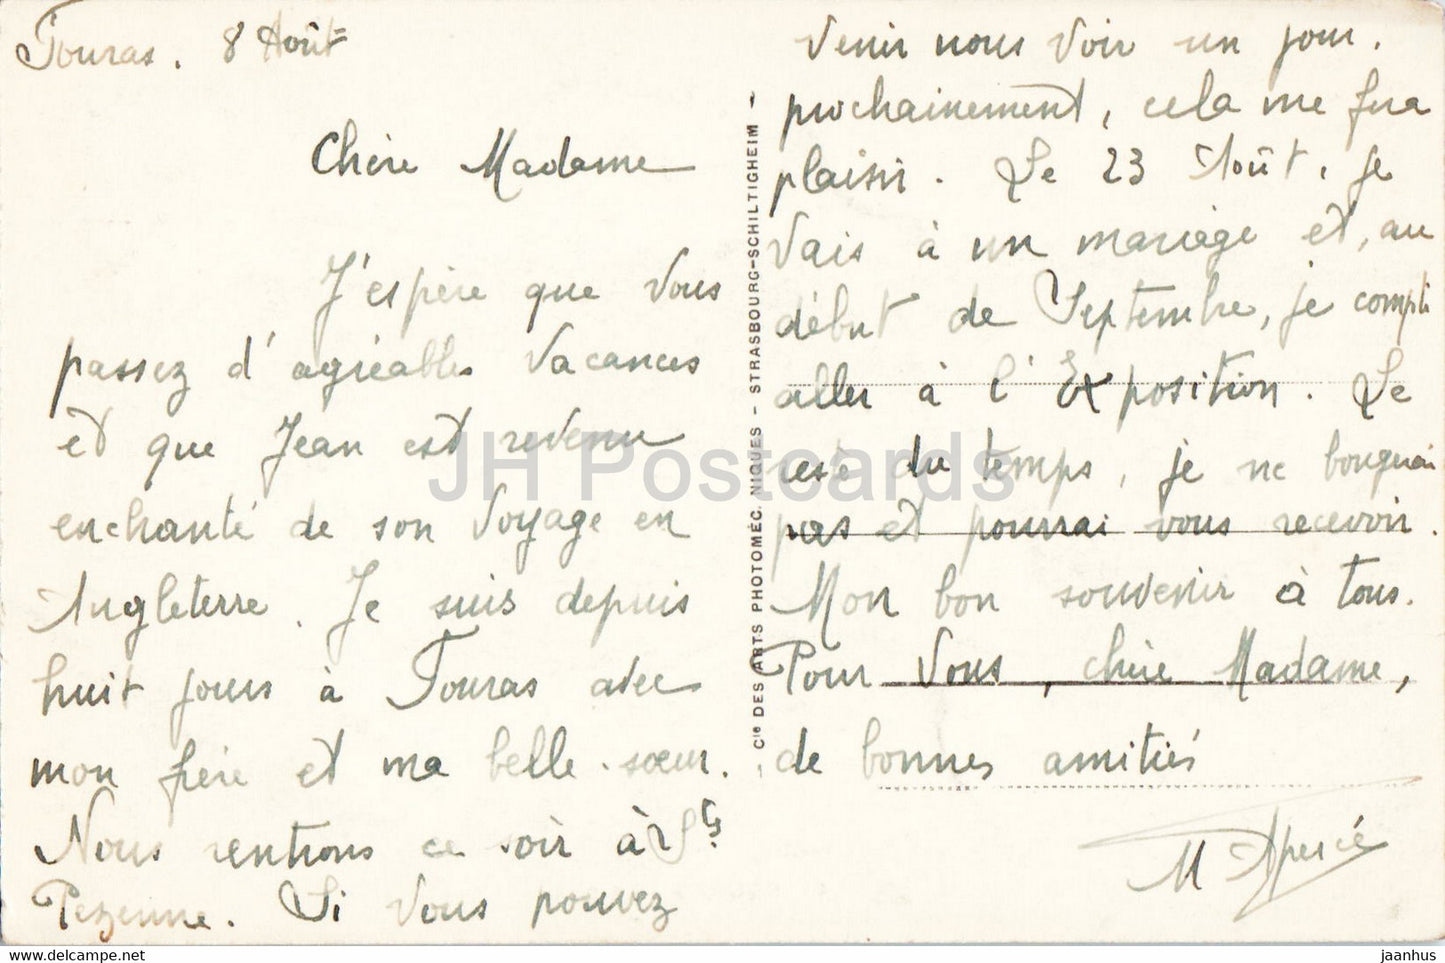 Touras. 8 Août
Chère Madame
J'espère que vous
passez d'agréables vacances
et que Jean est revenu
enchanté de son voyage en
Angleterre. Je suis depuis
huit jours à Touras avec
mon frère et ma belle-sœur.
Nous rentrons ce soir à Ste
Pezenne. Si vous pouvez
venir nous voir un jour,
prochainement, cela me fera
plaisir. Le 23 Août, je
vais à un mariage et, au
début de Septembre, je compte
aller à l'Exposition. Le
reste du temps, je ne bougerai
pas et pourrai vous recevoir.
Mon bon souvenir à tous.
Pour vous, chère Madame,
de bonnes amitiés
M
Cie DES ARTS PHOTOMÉCANIQUES - STRASBOURG-SCHILTIGHEIM
JH Postcards
www.hippostcard.com
jaanhus